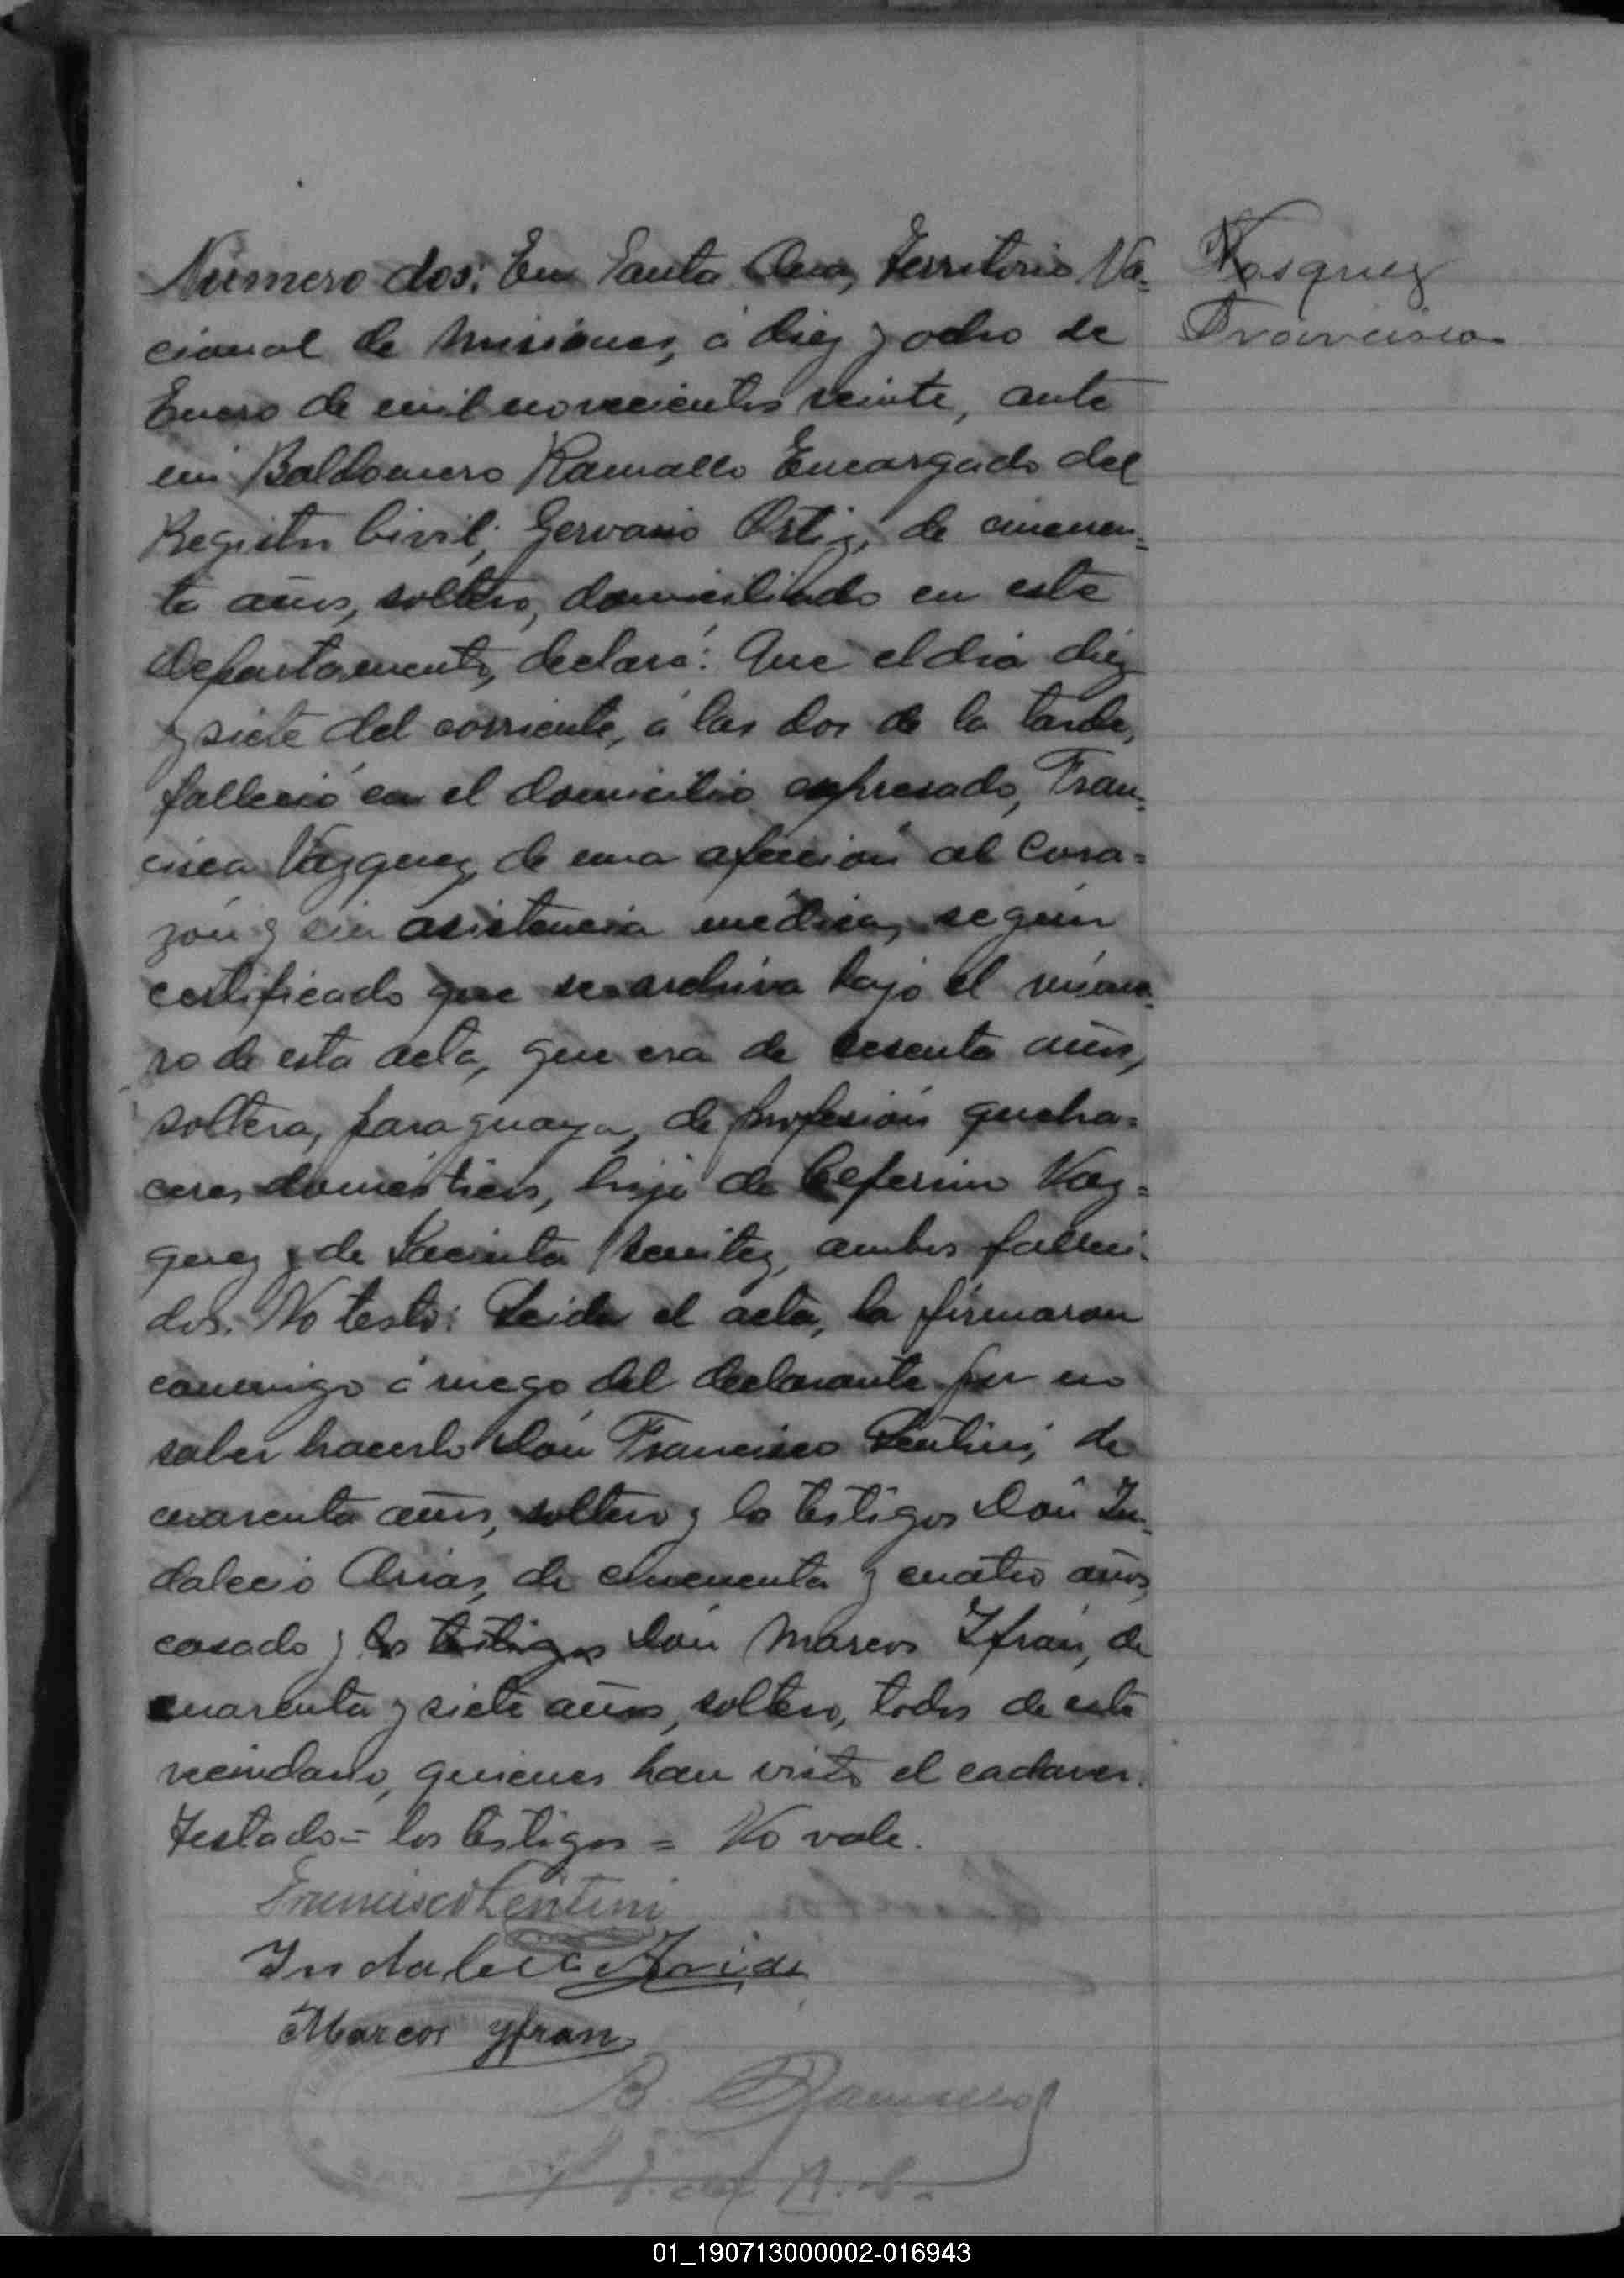 Número dos: En Santa Ana, Territorio Na-
cional de Misiones, á diez y ocho de
Enero de mil novecientos veinte, ante
mi Baldomero Ramallo Encargado del
Registro Civil; Gervasio Ortiz, de cincuen-
ta años, soltero, domiciliado en este
Departamento, declaró: Que el dia diez
y siete del corriente, á las dos de la tarde,
falleció en el domicilio expresado, Fran-
cisca Vazquez, de una afección al Cora-
zón y sin asistencia médica, según
certificado que se archiva bajo el núme-
ro de esta acta, que era de sesenta años,
soltera, paraguaya, de profesión queha-
ceres domésticos, hija de Ceferino Vaz-
quez y de Jacinta Benitez, ambos falleci-
dos. No testó: Leida el acta, la firmaron
conmigo á ruego del declarante por no
saber hacerlo Don Francisco Lentini, de
cuarenta años, soltero y los testigos Don In-
dalecio Arias, de cincuenta y cuatro años,
casado y los testigos Don Marcos Ifrán, de
cuarenta y siete años, soltero, todos de este
vecindario, quienes han visto el cadaver.
Testado = los testigos = No vale.
Francisco Lentini
Indalecio Arias
Marcos Yfran
B. Ramallo
Vasquez
Francisca
01_190713000002-016943